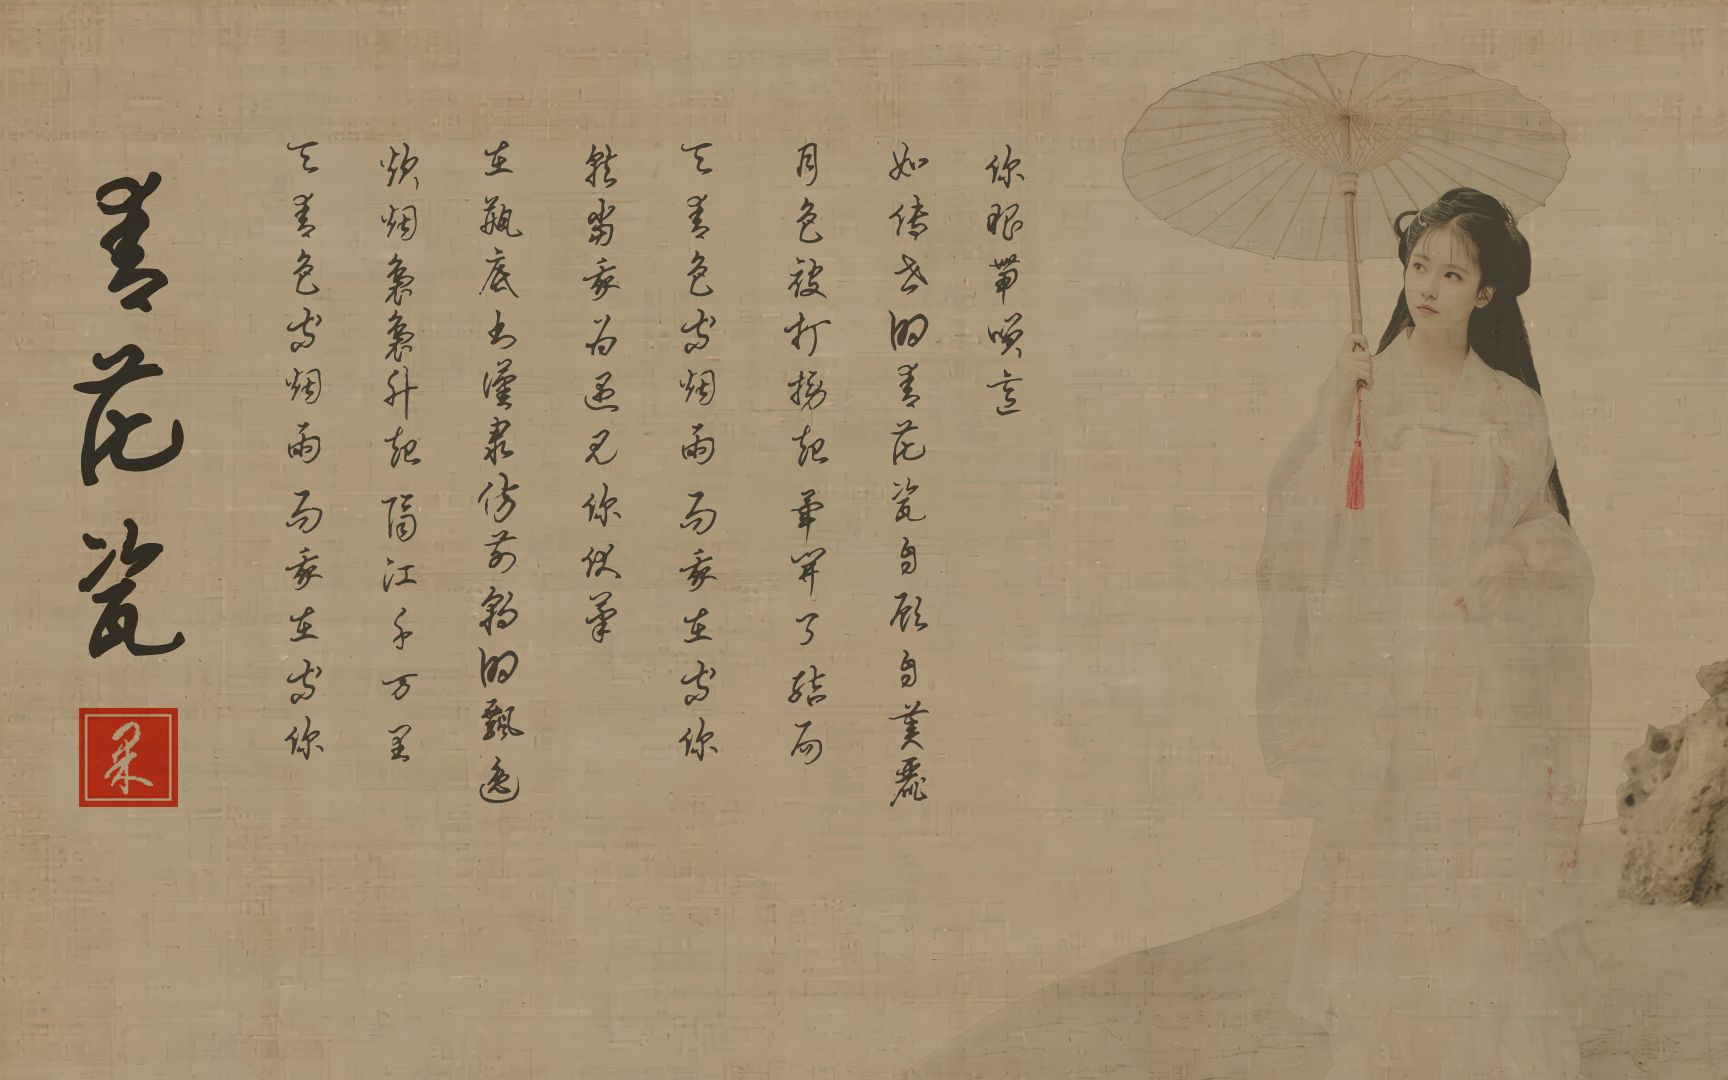 青花瓷
天青色等烟雨 而我在等你
炊烟袅袅升起 隔江千万里
在瓶底书汉隶仿前朝的飘逸
就当我为遇见你伏笔
天青色等烟雨 而我在等你
月色被打捞起 晕开了结局
如传世的青花瓷自顾自美丽
你眼带笑意